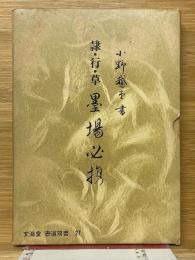 小野鵞堂書
隷・行・草
墨場必携
玄海堂 書道選書 27